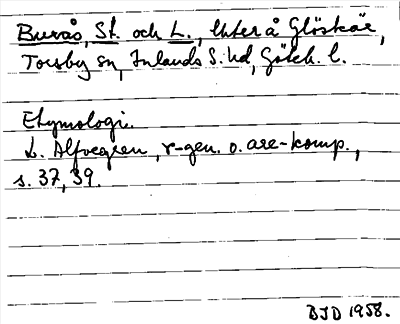 Burås, St. och L., lhter å Glöskär,
Torsby sn, Inlands S. hd, Göteb. l.
Etymologi.
L. Alfvegren, r-gen. o. are-komp.,
s. 37, 39.
BJD 1958.